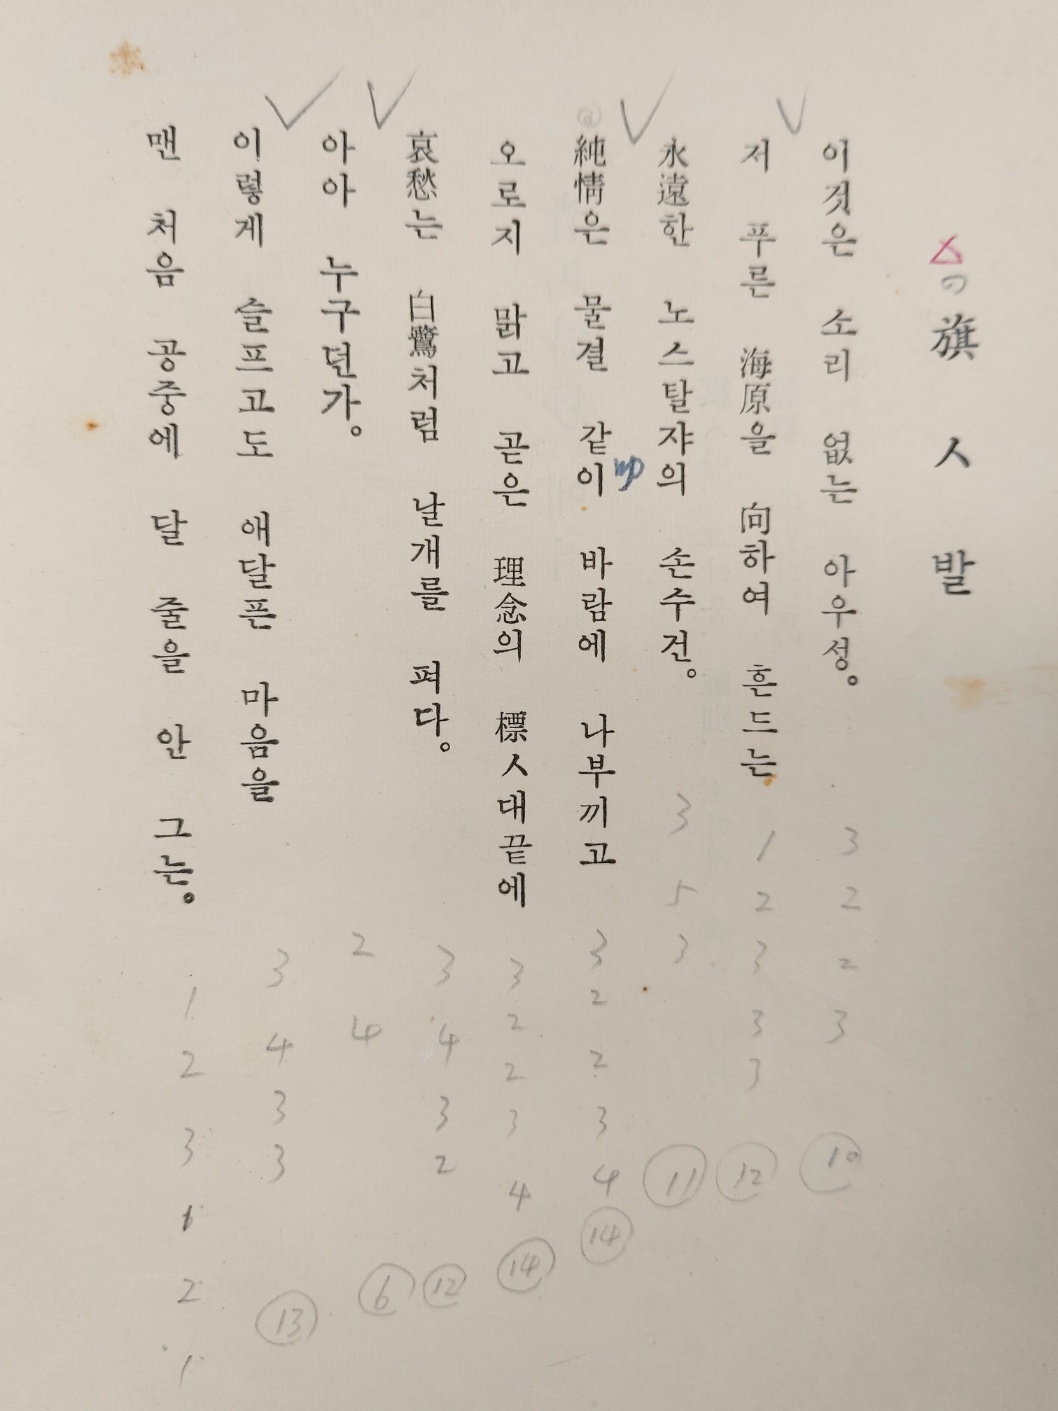 の
旗 ㅅ 발
이것은 소리 없는 아우성。 3 2 2 3 10
저 푸른 海原을 向하여 흔드는 1 2 3 3 3 12
永遠한 노스탈쟈의 손수건。 3 5 3 11
純情은 물결 같이 바람에 나부끼고 3 2 2 3 4 14
오로지 맑고 곧은 理念의 標ㅅ대끝에 3 2 2 3 4 14
哀愁는 白鷺처럼 날개를 펴다。 3 4 3 2 12
아아 누구던가。 2 4 6
이렇게 슬프고도 애달픈 마음을 3 4 3 3 13
맨 처음 공중에 달 줄을 안 그는。 1 2 3 1 2 1